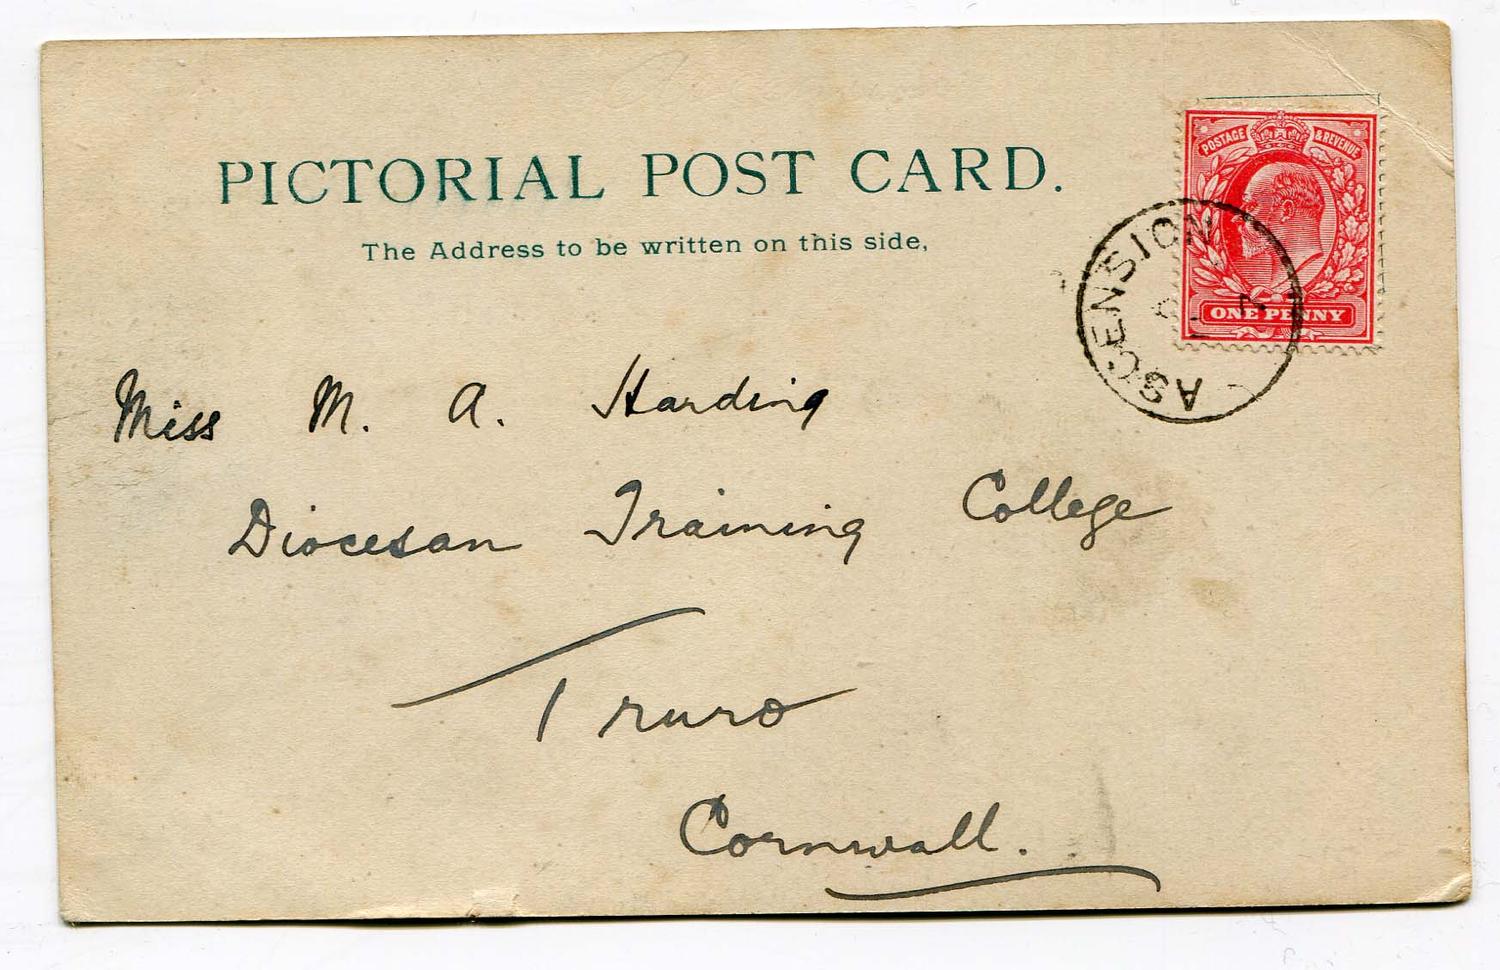 PICTORIAL POST CARD.
The Address to be written on this side.
POSTAGE & REVENUE
ONE PENNY
ASCENSION
Miss M. A. Harding
Diocesan Training College
Truro
Cornwall.